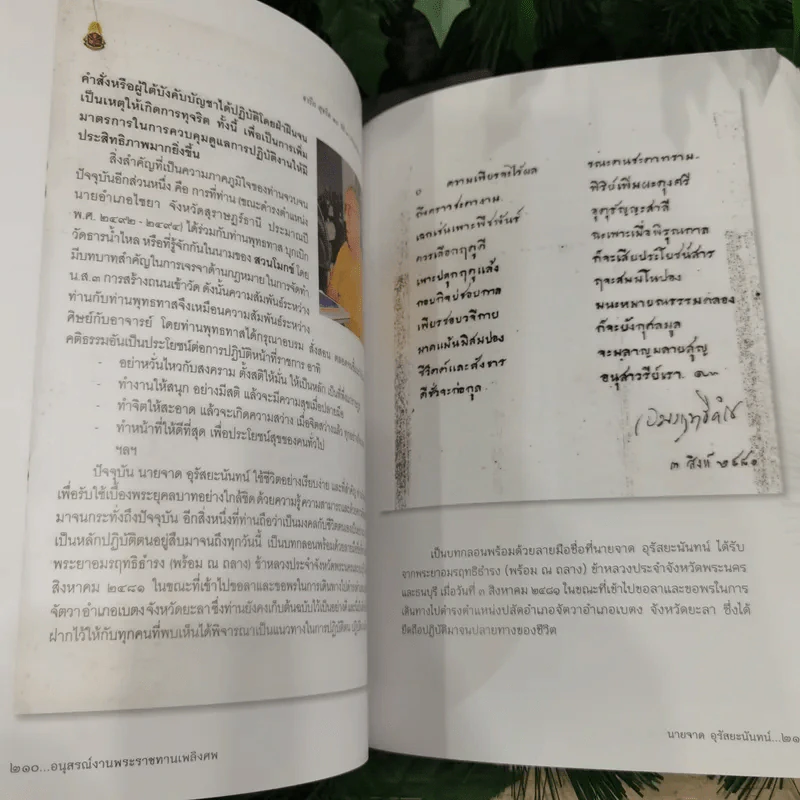 คำสั่งหรือผู้ใต้บังคับบัญชาได้ปฏิบัติโดยฝ่าฝืนจน
เป็นเหตุให้เกิดการทุจริต ทั้งนี้ เพื่อเป็นการเพิ่ม
มาตรการในการควบคุมดูแลการปฏิบัติงานให้มี
ประสิทธิภาพมากยิ่งขึ้น
สิ่งสำคัญที่เป็นความภาคภูมิใจของท่านจวบจน
ปัจจุบันอีกส่วนหนึ่ง คือ การที่ท่าน (ขณะดำรงตำแหน่ง
นายอำเภอไชยา จังหวัดสุราษฎร์ธานี ประมาณปี
พ.ศ. ๒๔๙๒ - ๒๔๙๔) ได้ร่วมกับท่านพุทธทาส บุกเบิก
วัดธารน้ำไหล หรือที่รู้จักกันในนามของ สวนโมกข์ โดย
มีบทบาทสำคัญในการเจรจาด้านกฎหมาย ในการจัดทำ
น.ส.๓ การสร้างถนนเข้าวัด ดังนั้นความสัมพันธ์ระหว่าง
ท่านกับท่านพุทธทาสจึงเหมือนความสัมพันธ์ระหว่าง
ศิษย์กับอาจารย์ โดยท่านพุทธทาสได้กรุณาอบรม สั่งสอน
คติธรรมอันเป็นประโยชน์ต่อการปฏิบัติหน้าที่ราชการ อาทิ
- อย่าหวั่นไหวกับสงคราม ตั้งสติให้มั่น ให้เป็นหลัก
- ทำงานให้สนุก อย่างมีสติ แล้วจะมีความสุขเมื่อปลายมือ
- ทำจิตให้สะอาด แล้วจะเกิดความสว่าง เมื่อจิตสว่างแล้ว
- ทำหน้าที่ให้ดีที่สุด เพื่อประโยชน์สุขของคนทั่วไป
ฯลฯ
ปัจจุบัน นายจาด อุรัสยะนันทน์ ใช้ชีวิตอย่างเรียบง่าย และที่สำคัญ
เพื่อรับใช้เบื้องพระยุคลบาทอย่างใกล้ชิด ด้วยความรู้ ความสามารถ
มาจนกระทั่งถึงปัจจุบัน อีกสิ่งหนึ่งที่ท่านถือว่าเป็นมงคลกับชีวิต
เป็นหลักปฏิบัติตนอยู่สืบมาจนถึงทุกวันนี้ เป็นบทกลอนพร้อมด้วย
พระยาอมรฤทธิธำรง (พร้อม ณ ถลาง) ข้าหลวงประจำจังหวัดพระนคร
สิงหาคม ๒๔๘๑ ในขณะที่เข้าไปขอลาและขอพรในการเดินทางไป
จัตวา อำเภอเบตง จังหวัดยะลา ซึ่งท่านยังคงเก็บต้นฉบับไว้เป็นอย่างดี
ฝากไว้ให้กับทุกคนที่พบเห็นได้พิจารณาเป็นแนวทางในการปฏิบัติตน
๒๑๐...อนุสรณ์งานพระราชทานเพลิงศพ
ความเพียรจะไร้ผล
ถึงคราวชะตางาม
ควรเลือกฤดูดี
เพาะปลูกฤดูแล้ง
กอบกิจประกอบกาล
เพียรชอบวิธีกาย
ชีวิตต์และสังขาร
ดีชั่วจะก่อกุล
ก็จะเสียประโยชน์สาร
ก็จะยังกุศลมูล
จะผลาญมลายสูญ
อนุสาวรีย์เรา
๓ สิงห์ ๒๔๘๑
เป็นบทกลอนพร้อมด้วยลายมือชื่อที่นายจาด อุรัสยะนันทน์ ได้รับ
จากพระยาอมรฤทธิธำรง (พร้อม ณ ถลาง) ข้าหลวงประจำจังหวัดพระนคร
และธนบุรี เมื่อวันที่ ๓ สิงหาคม ๒๔๘๑ ในขณะที่เข้าไปขอลาและขอพรในการ
เดินทางไปดำรงตำแหน่งปลัดอำเภอจัตวาอำเภอเบตง จังหวัดยะลา ซึ่งได้
ยึดถือปฏิบัติมาจนปลายทางของชีวิต
นายจาด อุรัสยะนันทน์...๒๑